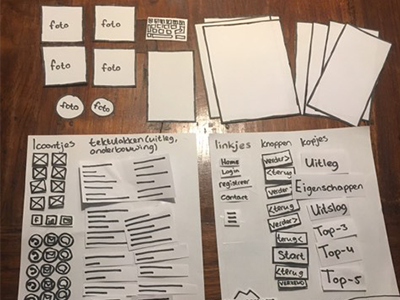 foto
foto
foto
foto
foto
foto
Icoontjes
tekstvlakken (uitleg,
onderbouwing)
linkjes
knoppen
kopjes
Home
Login
registreer
contact
verder >
< terug
verder >
< terug
verder >
terug <
Start
< terug
Uitleg
Eigenschappen
Uitslag
Top-3
Top-4
Top-5